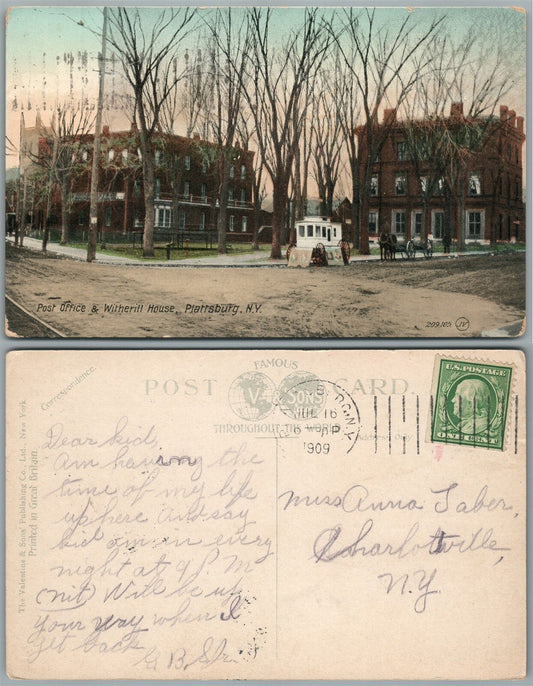 Post Office & Witherill House, Plattsburg, N.Y.
209.105 JV
FAMOUS
POST CARD.
V & SONS
THROUGHOUT THE WORLD
Correspondence.
Address only
The Valentine & Sons' Publishing Co., Ltd., New York.
Printed in Great Britain.
16
1909
U.S. POSTAGE
ONE CENT
Dear kid,
Am having the
time of my life
up here and say
kid am in every
night at 9 P.M
(nit) Will be up
your way when I
get back
G B
Miss Anna Taber,
Charlotteville,
N.Y.